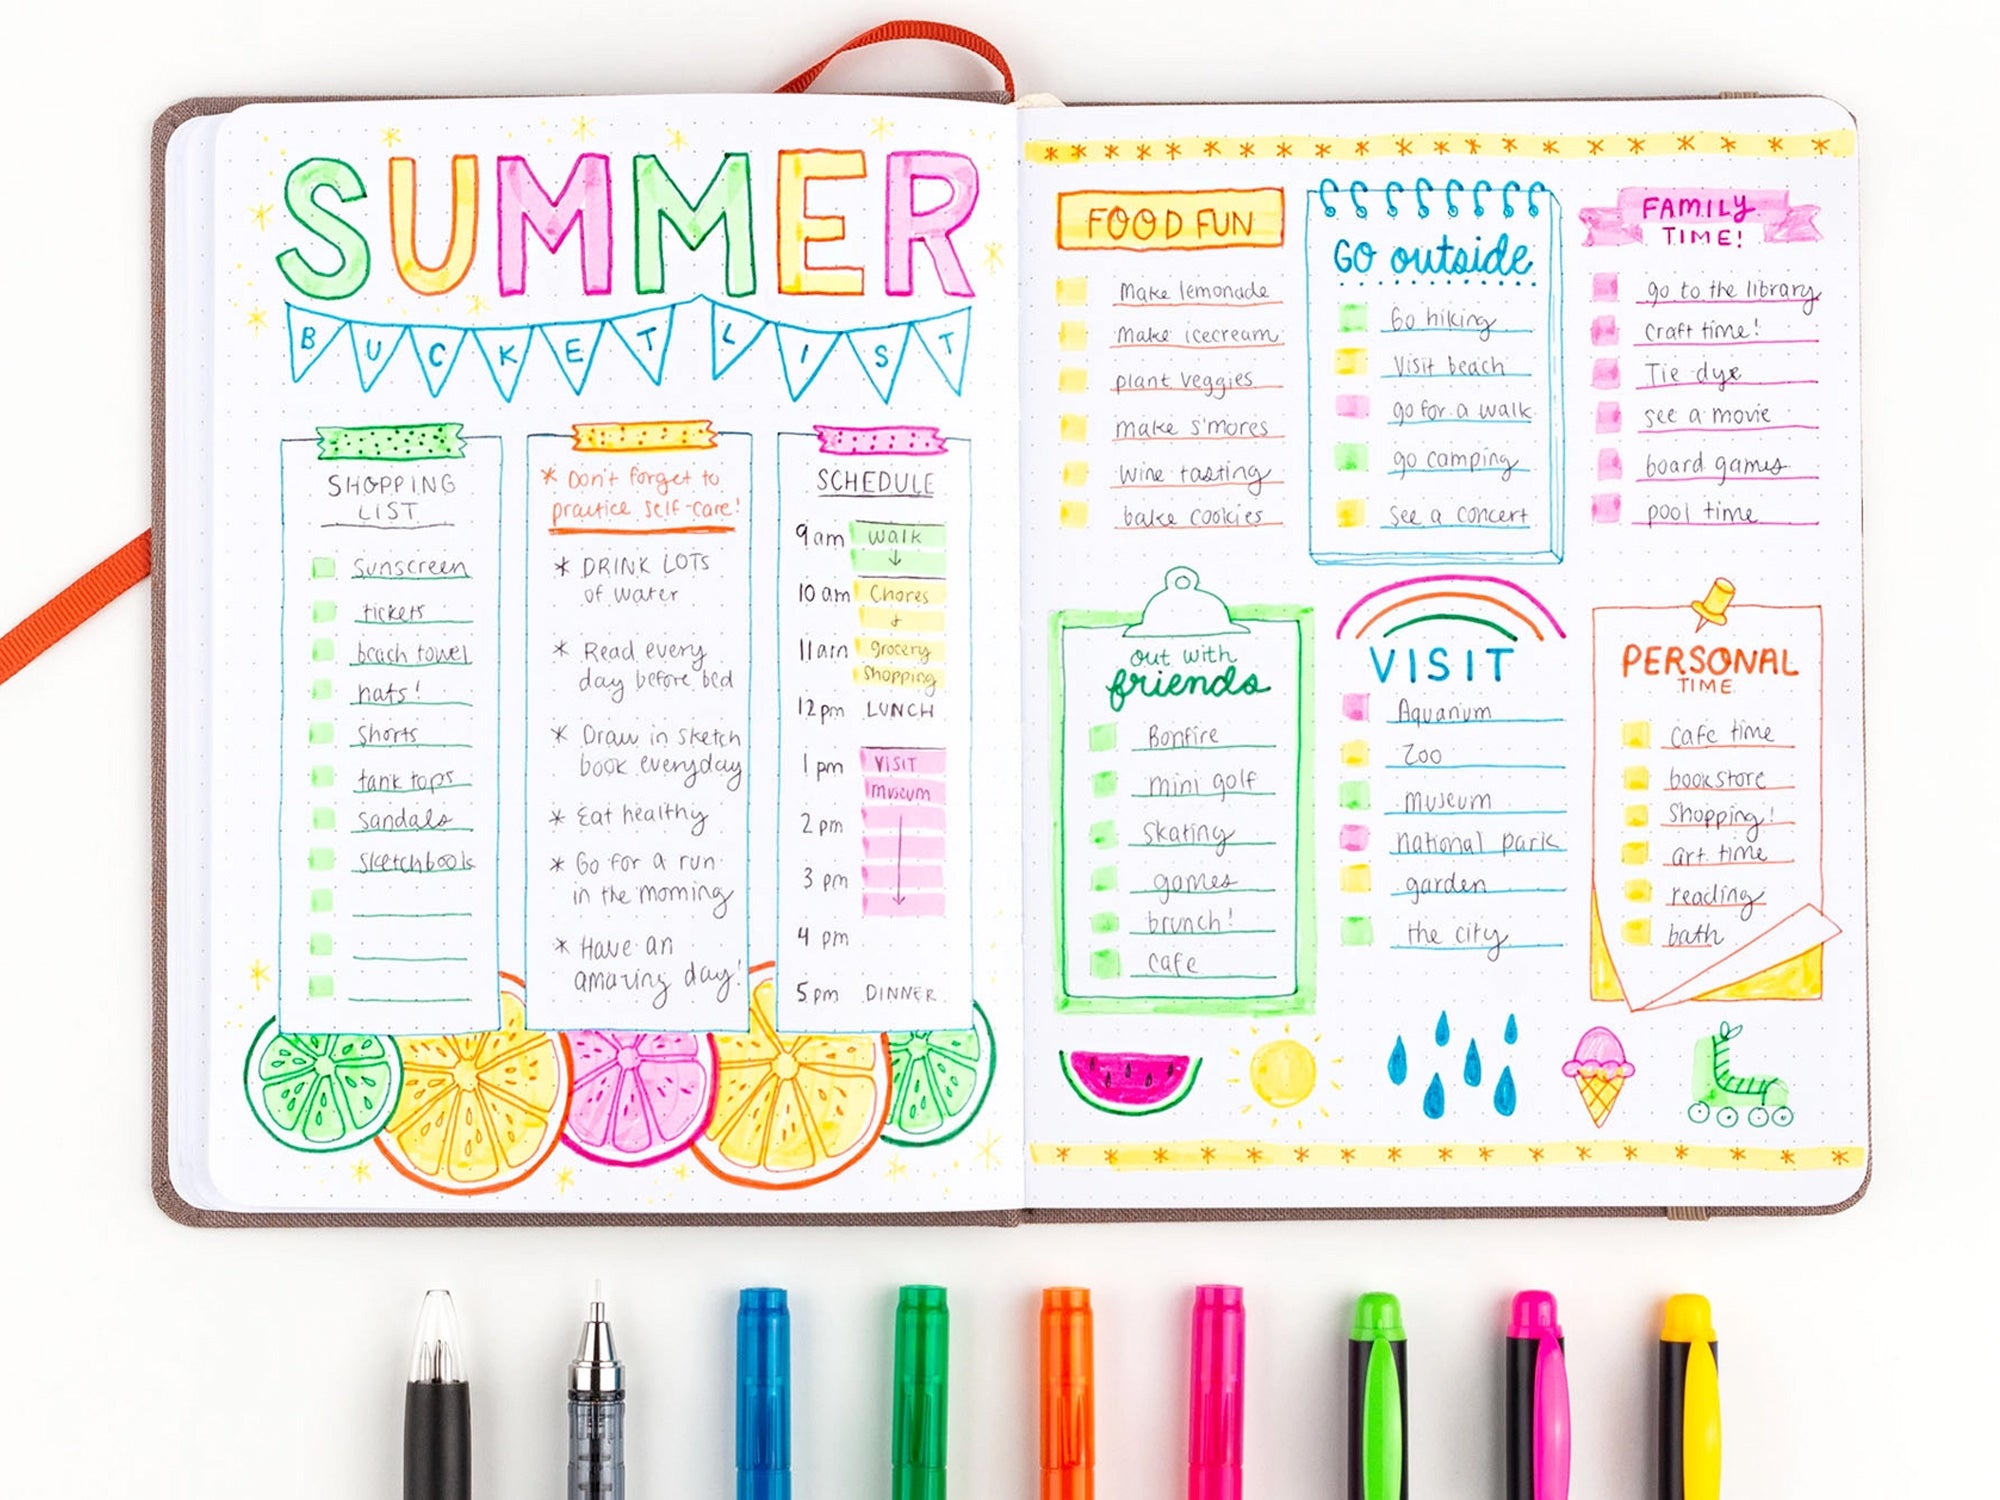 SUMMER
BUCKET LIST
SHOPPING
LIST
Sunscreen
tickets
beach towel
hats!
Shorts
tank tops
Sandals
Sketchbook
* Don't forget to
practice self-care!
* DRINK LOTS
of water
* Read every
day before bed
* Draw in sketch
book everyday
* Eat healthy
* Go for a run
in the morning
* Have an
amazing day!
SCHEDULE
9am walk
10am Chores
&
11am grocery
Shopping
12pm LUNCH
1pm VISIT
museum
2pm
3pm
4pm
5pm DINNER
FOOD FUN
Make lemonade
Make icecream
plant veggies
make s'mores
wine tasting
bake cookies
GO outside
Go hiking
Visit beach
go for a walk
go camping
See a concert
FAMILY
TIME!
go to the library
craft time!
Tie dye
see a movie
board games
pool time
out with
friends
Bonfire
mini golf
Skating
games
brunch!
cafe
VISIT
Aquarium
Zoo
museum
national park
garden
the city
PERSONAL
TIME
cafe time
bookstore
Shopping!
art time
reading
bath